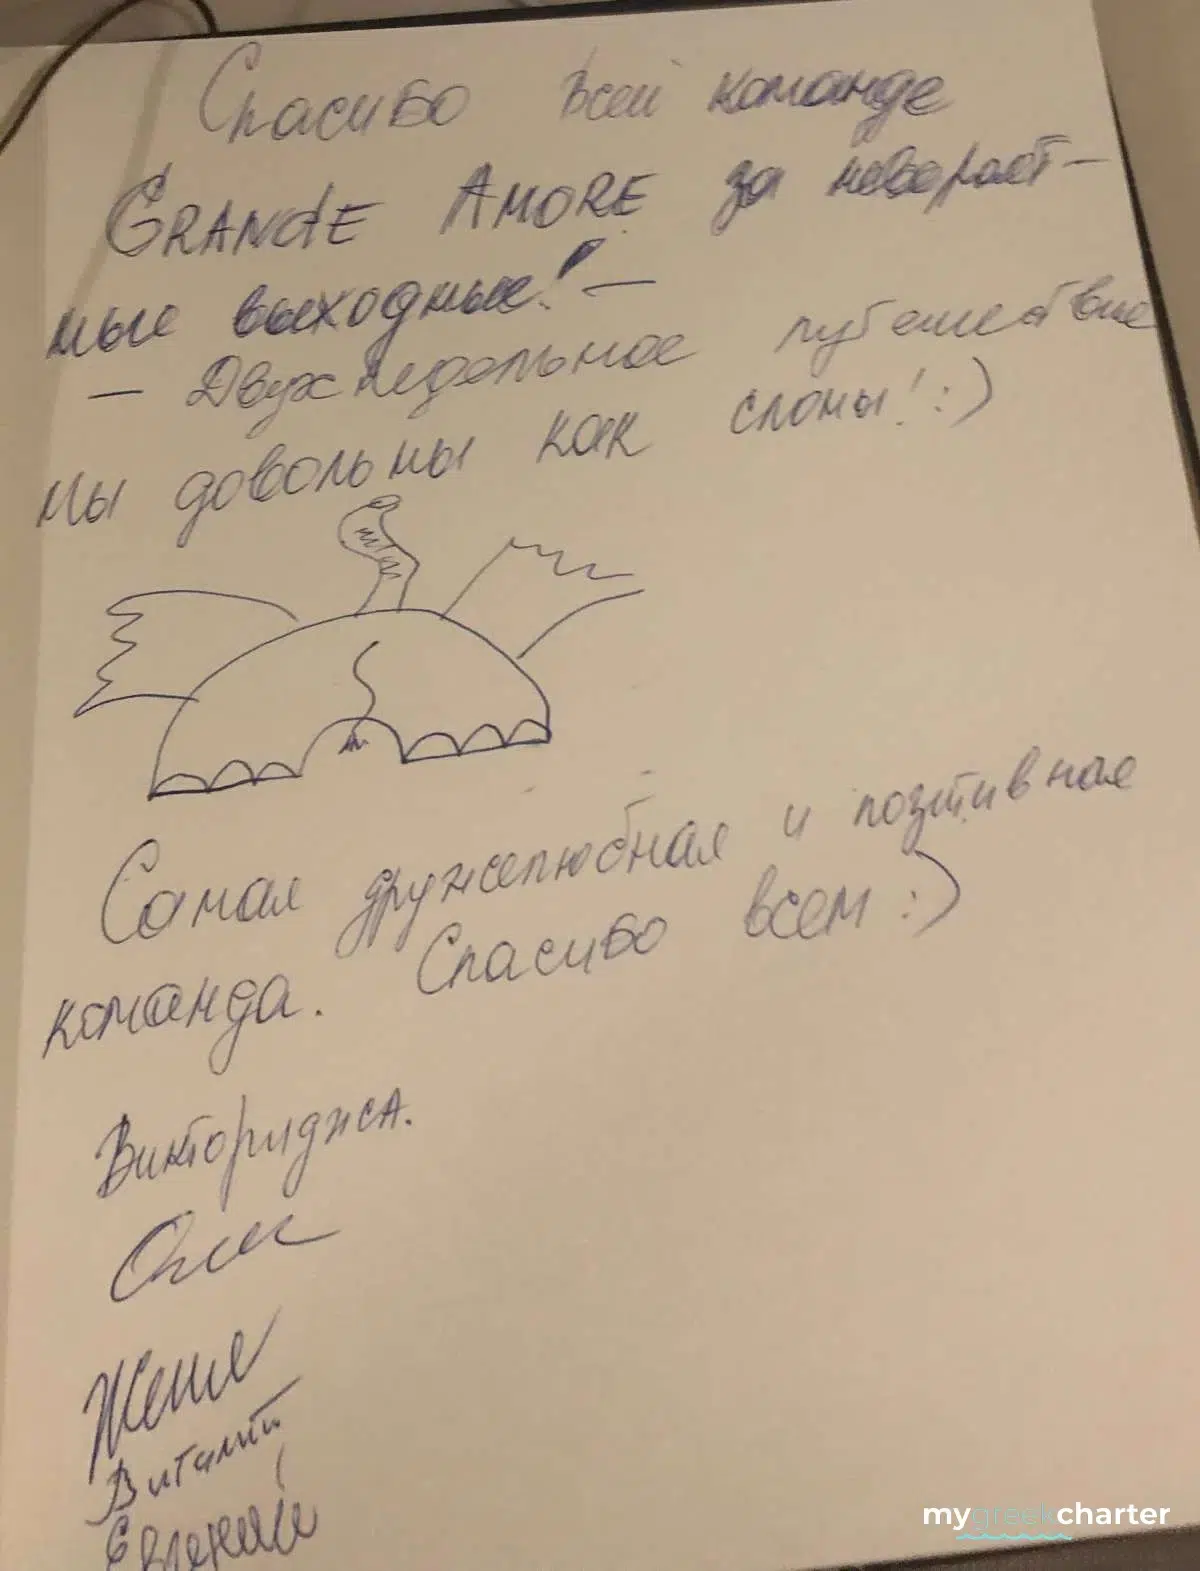 Спасибо всей команде
GRANDE AMORE за невероят-
ные выходные! —
— Двухнедельное путешествие
Мы довольны как слоны! :)
Самая дружелюбная и позитивная
команда. Спасибо всем :)
Викториджса.
Женя
Виталий
Евгений
mygreekcharter